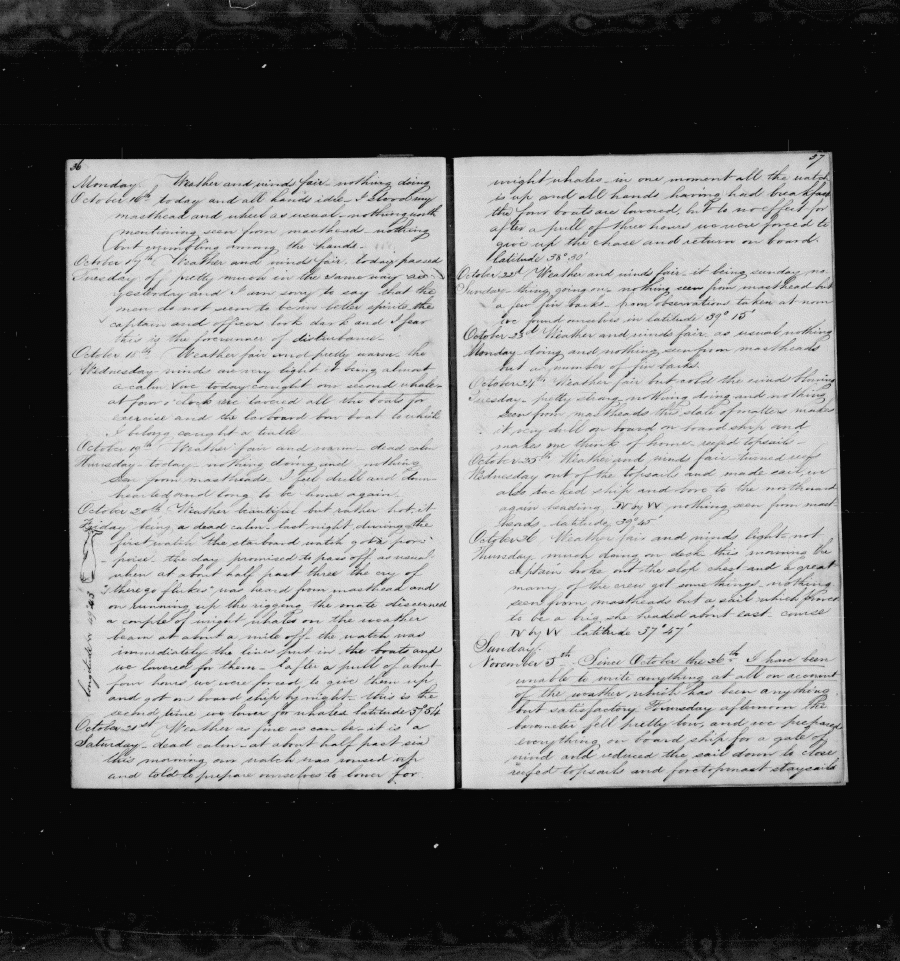 36
Monday Weather and winds fair nothing doing
October 16th today and all hands idle. I stood my
masthead and wheel as usual nothing worth
mentioning seen from masthead nothing
but grumbling among the hands.
October 17th Weather and wind fair. today passed
Tuesday off pretty much in the same way as
yesterday and I am sorry to say that the
men do not seem to be in better spirits the
captain and officers look dark and I fear
this is the forerunner of disturbance.
October 18th Weather fair and pretty warm. the
Wednesday winds are very light it being almost
a calm. we today caught one second whale
at four o'clock we lowered all the boats for
exercise and the larboard bow boat to which
I belong caught a turtle
October 19th Weather fair and warm dead calm
Thursday today nothing doing and nothing
seen from mastheads. I feel dull and down
hearted and long to be home again.
October 20th Weather beautiful but rather hot it
Friday being a dead calm. last night during the
first watch the starboard watch got a por
poise. the day promised to pass off as usual
when at about half past three the cry of
"there go flukes" was heard from masthead and
on running up the rigging the mate discerned
a couple of right whales on the weather
beam at about a mile off the watch was
immediately the lines put in the boats and
we lowered for them. after a pull of about
four hours we were forced to give them up
and got on board ship by night this is the
second time we lower for whales latitude 37°54'
longitude
October 21st Weather as fine as can be it is a
Saturday dead calm at about half past six
this morning our watch was roused up
and told to prepare ourselves to lower for
37
right whales in one moment all the watch
is up and all hands having had breakfast
the four boats are lowered, but to no effect for
after a pull of three hours we were forced to
give up the chase and return on board.
latitude 38° 30'
October 22d Weather and winds fair, it being sunday no
Sunday thing going on nothing seen from masthead but
a few fin backs. from observations taken at noon
we found ourselves in latitude 39° 15'
October 23d Weather and winds fair, as usual nothing
Monday doing and nothing seen from mastheads
but a number of fin backs.
October 24th Weather fair but cold the winds blowing
Tuesday pretty strong nothing doing and nothing
seen from mastheads this state of matters makes
it very dull on board on board ship and
makes me think of home. reefed topsails
October 25th Weather and winds fair turned reefs
Wednesday out of the topsails and made sail, we
also tacked ship and bore to the northward
again heading N by W nothing seen from mast
heads. latitude 39° 45'
October 26 Weather fair and winds light, not
Thursday much doing on deck this morning the
captain broke out the slop chest and a great
many of the crew got some things. nothing
seen from mastheads but a sail which proves
to be a brig she headed about east course
N by W latitude 37° 47'
Sunday
November 5th Since October the 26th I have been
unable to write anything at all on account
of the weather which has been anything
but satisfactory. Thursday afternoon the
barometer fell pretty low, and we prepared
everything on board ship for a gale of
wind and reduced the sail down to close
reefed topsails and foretopmast staysails